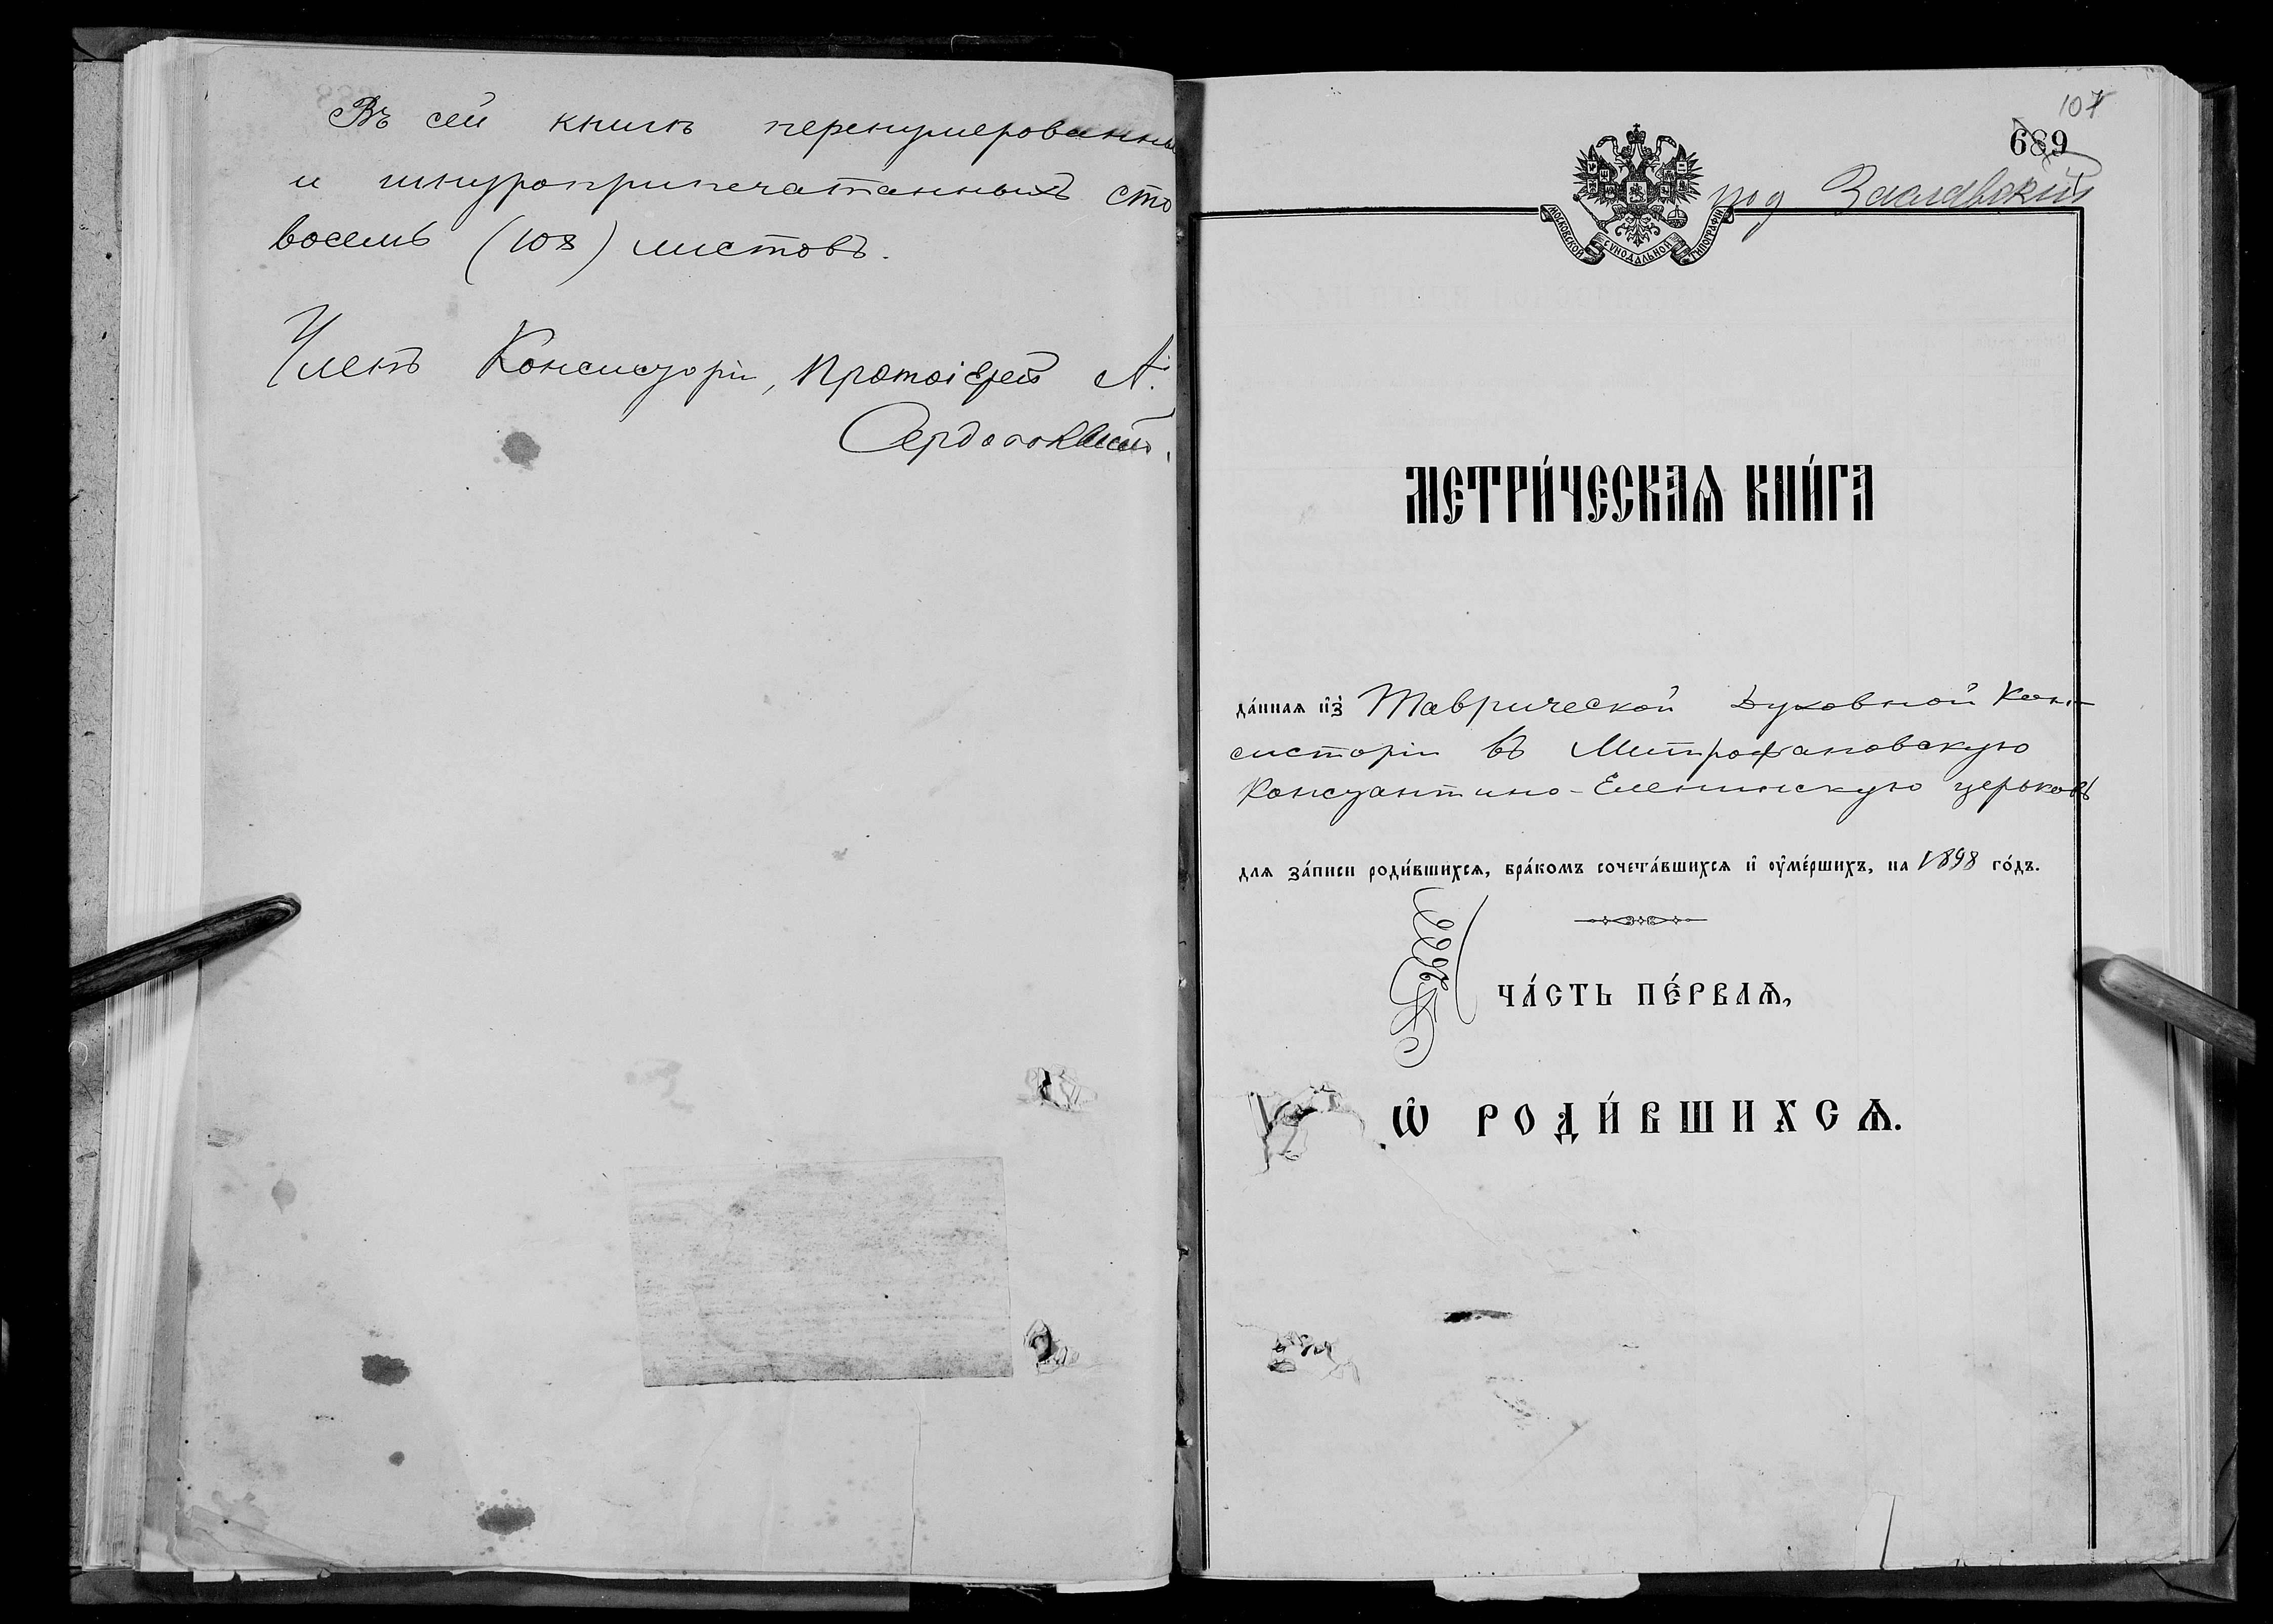 Въ сей книгѣ перенумерованны
и шнуроприпечатанныхъ сто
восемь (108) листовъ.
Членъ Консисторіи, Протоіерей А.
Сердобольскій.
107
689
МОСКОВСКОЙ СѴНОДАЛЬНОЙ ТИПОГРАФІИ
МЕТРИ́ЧЕСКАѦ КНИ́ГА
да́ннаѧ и҆з̾ Таврической Духовной Кон-
систоріи въ Митрофановскую
Константино-Еленинскую церковь
длѧ за́писи роди́вшихсѧ, бра́комъ сочета́вшихсѧ и҆ ᲂу҆ме́ршихъ, на 1898 го́дъ.
ЧА́СТЬ ПЕ́РВАѦ,
Ѡ҆ РОДИ́ВШИХСѦ.